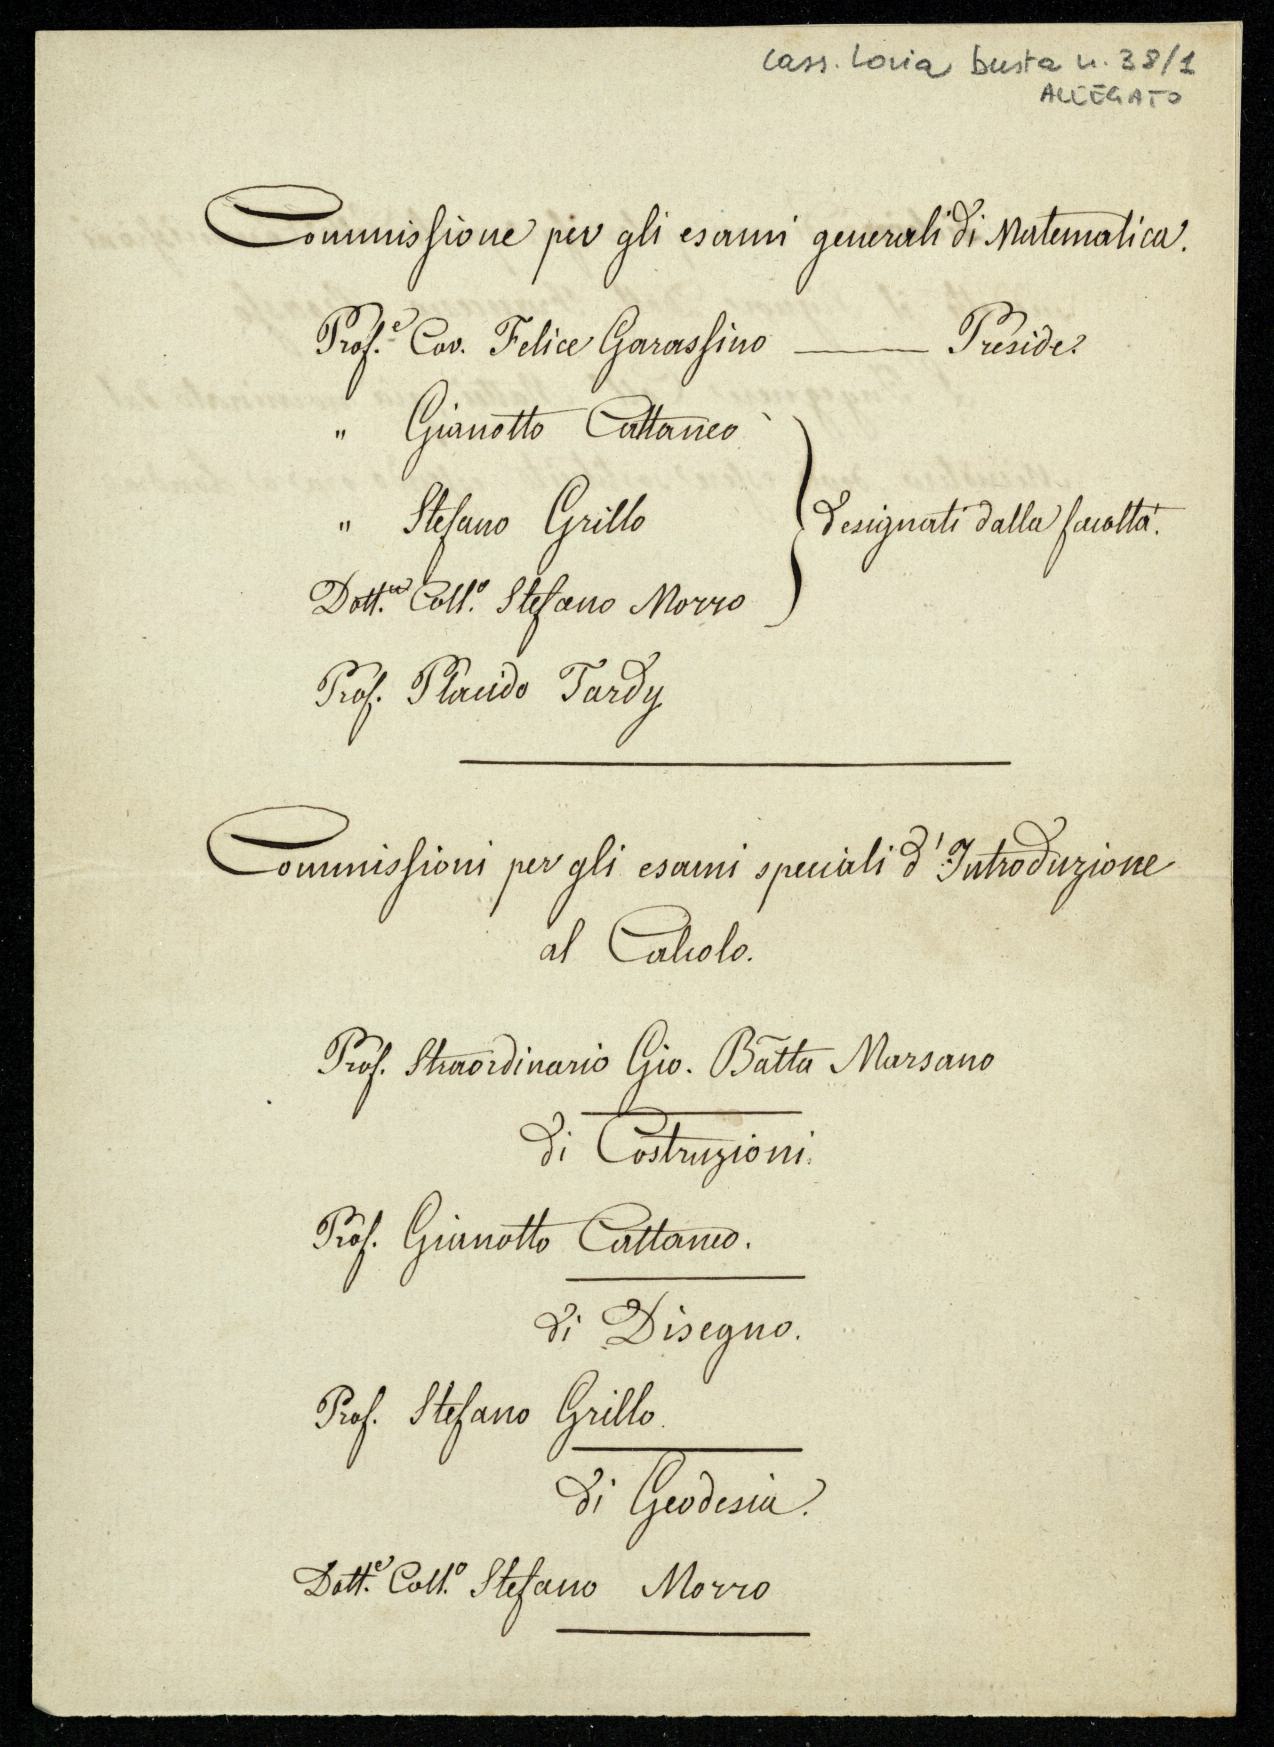 Cass. Loria busta n. 38/1
ALLEGATO
Commissione per gli esami generali di Matematica.
Prof.e Cav. Felice Garassino —— Preside.
" Gianotto Cattaneo
" Stefano Grillo } designati dalla facoltà.
Dott.e Coll.o Stefano Morro
Prof. Placido Tardy
Commissioni per gli esami speciali d'Introduzione
al Calcolo.
Prof. Straordinario Gio. Batta Marsano
di Costruzioni.
Prof. Gianotto Cattaneo.
di Disegno.
Prof. Stefano Grillo.
di Geodesia.
Dott.e Coll.o Stefano Morro